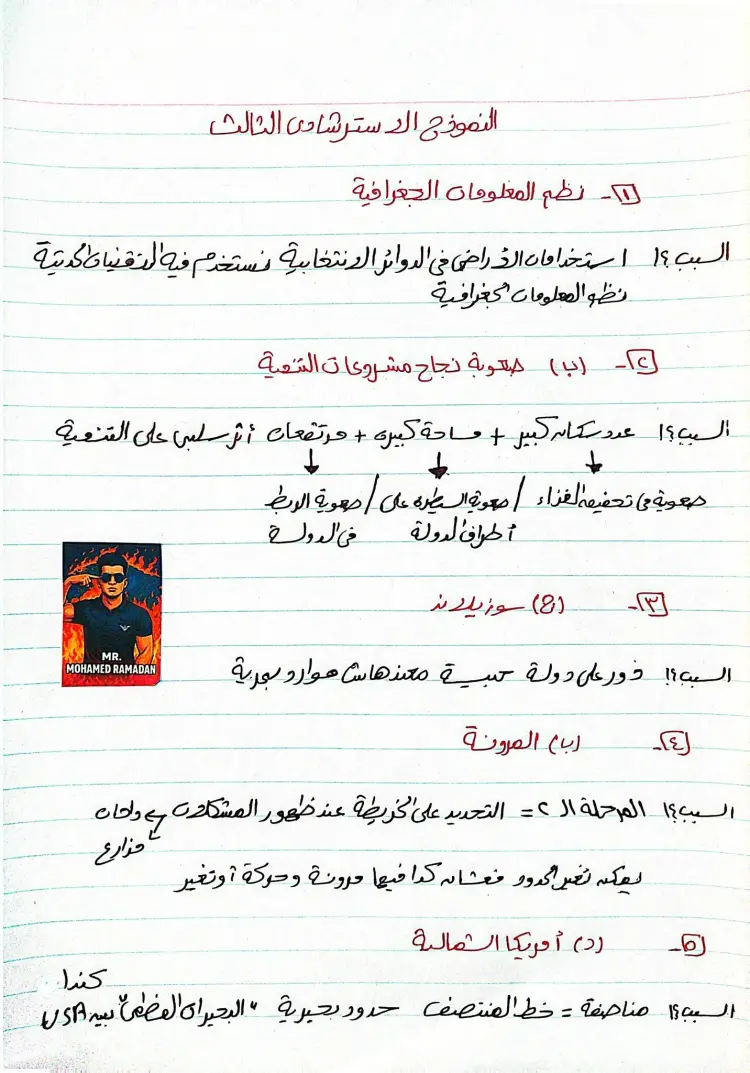 النموذج الاسترشادى الثالث
١- نظم المعلومات الجغرافية
السبب؟! استخدامات الأراضى فى الدوائر الانتخابية نستخدم فيه التقنيات الحديثة
نظم المعلومات الجغرافية
٢- (ب) صعوبة نجاح مشروعات التنمية
السبب؟! عدد سكان كبير + مساحة كبيره + مرتفعات أثر سلبى على التنمية
صعوبة فى تحقيق الغذاء / صعوبة السيطره على / صعوبة الربط
أطراف الدولة فى الدولة
٣- (ج) سوزيلاند
MR.
MOHAMED RAMADAN
السبب؟! دور على دولة حبيسة معندهاش موارد بحرية
٤- (ب) المرونة
السبب؟! المرحلة الـ ٢ = التحديد على الخريطة عند ظهور المشكلات زى واحات
مزارع
يمكن تغير الحدود فعشان كدا فيها مرونة وحركة أو تغير
٥- (د) أمريكا الشمالية
كندا
السبب؟! مناصفة = خط المنتصف حدود بحيرية "البحيرات العظمى" بين USA